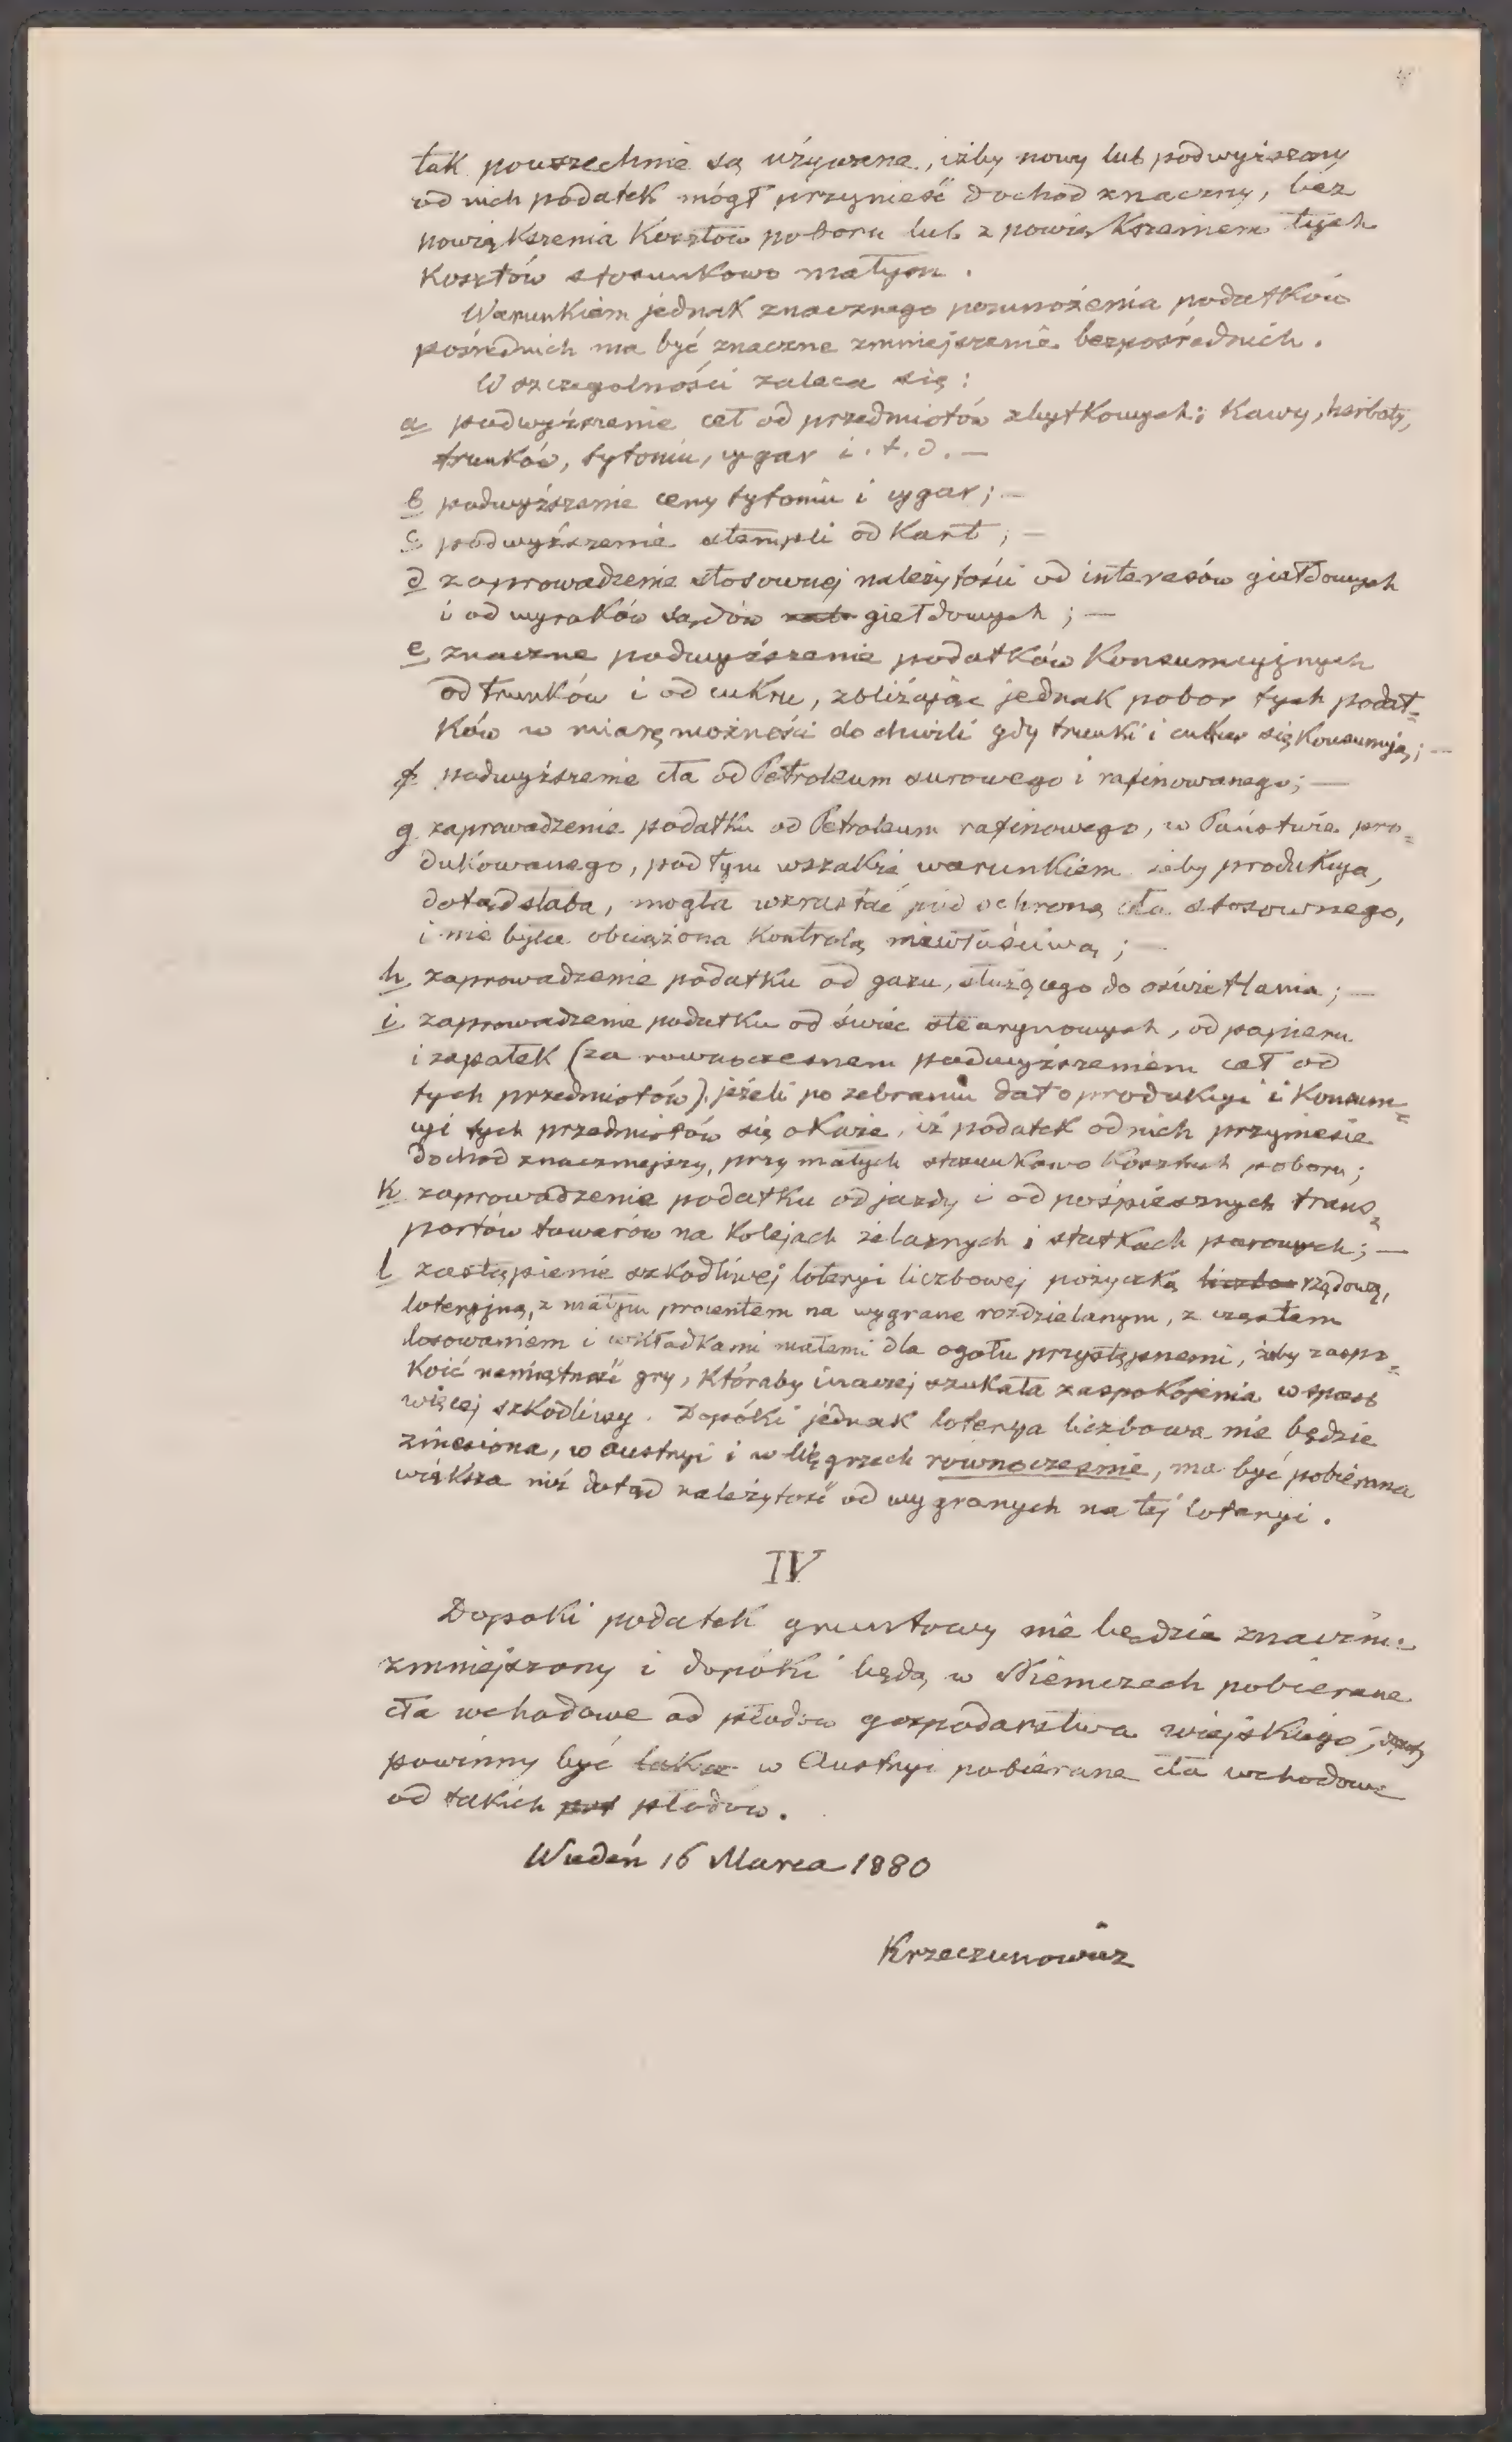 tak powszechnie są używane, iżby nowy lub podwyższony
od nich podatek mógł przynieść dochod znaczny, bez
powiększenia Kosztów poboru lub z powiększeniem tych
Kosztów stosunkowo małym.
Warunkiem jednak znacznego pomnożenia podatków
pośrednich ma być znaczne zmniejszenie bezpośrednich.
W szczegolności zaleca się:
a podwyższenie ceł od przedmiotów zbytkowych; Kawy, herbaty,
trunków, tytoniu, cygar i. t. d. —
b podwyższenie ceny tytoniu i cygar; —
c podwyższenie stempli od Kart; —
d zaprowadzenie stosownej należytości od interesów giełdowych
i od wyroków sądów giełdowych; —
e znaczne podwyższenie podatków Konsumcyjnych
od trunków i od cukru, zbliżając jednak pobor tych podat=
ków w miarę możności do chwili gdy trunki i cukier się Konsumują; —
f podwyższenie cła od Petroleum surowego i rafinowanego; —
g zaprowadzenie podatku od Petroleum rafinowego, w Państwie pro=
dukowanego, pod tym wszakże warunkiem żeby produkcya,
dotąd słaba, mogła wzrastać pod ochroną cła stosownego,
i nie była obciążona Kontrolą niewłaściwą; —
h zaprowadzenie podatku od gazu, służącego do oświetlania; —
i zaprowadzenie podatku od świec stearynowych, od papieru
i zapałek (za rownoczesnem podwyższeniem ceł od
tych przedmiotów), jeżeli po zebraniu dat o produkcyi i Konsum=
cyi tych przedmiotów się okaże, iż podatek od nich przyniesie
dochod znaczniejszy, przy małych stosunkowo Kosztach poboru;
k zaprowadzenie podatku od jazdy i od pośpiesznych trans=
portów towarów na Kolejach żelaznych i statkach parowych; —
l zastąpienie szkodliwej loteryi liczbowej pożyczką rządową,
loteryjną, z małym procentem na wygrane rozdzielanym, z częstem
losowaniem i wkładkami małemi dla ogołu przystępnemi, żeby zaspo=
koić namiętność gry, któraby inaczej szukała zaspokojenia w sposob
więcej szkodliwy. Dopóki jednak loterya liczbowa nie będzie
zniesiona, w Austryi i w Węgrzech rownocześnie, ma być pobierana
większa niż dotąd należytość od wygranych na tej loteryi.
IV
Dopoki podatek gruntowy nie będzie znacznie
zmniejszony i dopóki będą w Niemczech pobierane
cła wchodowe od płodów gospodarstwa wiejskiego,
powinny być w Austryi pobierane cła wchodowe
od takich płodów.
Wiedeń 16 Marca 1880
Krzeczunowicz